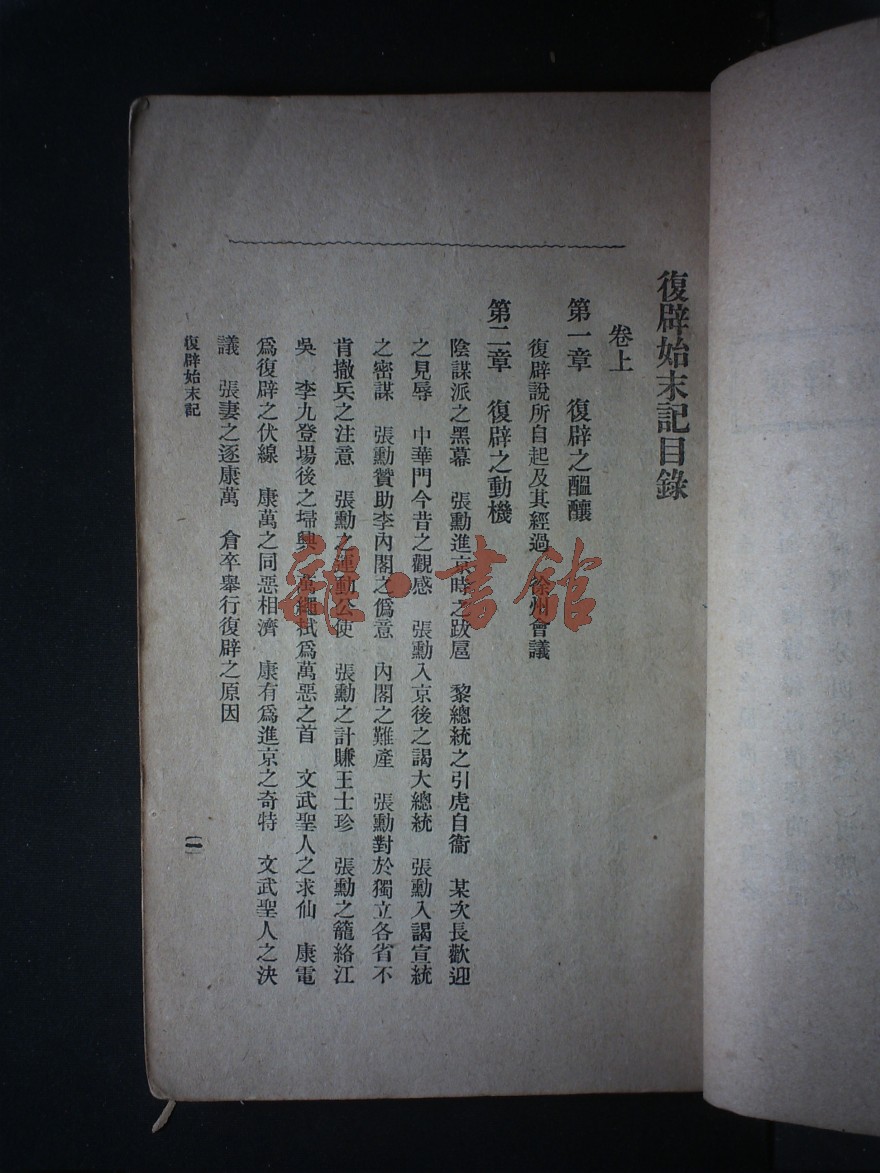 復辟始末記目錄
卷上
第一章 復辟之醞釀
復辟說所自起及其經過 徐州會議
第二章 復辟之動機
陰謀派之黑幕 張勳進京時之跋扈 黎總統之引虎自衞 某次長歡迎
之見辱 中華門今昔之觀感 張勳入京後之謁大總統 張勳入謁宣統
之密謀 張勳贊助李內閣之僞意 內閣之難產 張勳對於獨立各省不
肯撤兵之注意 張勳之運動公使 張勳之計賺王士珍 張勳之籠絡江
吳 李九登場後之掃興 萬繩栻爲萬惡之首 文武聖人之求仙 康電
爲復辟之伏線 康萬之同惡相濟 康有爲進京之奇特 文武聖人之決
議 張妻之逐康萬 倉卒舉行復辟之原因
復辟始末記
一
書館